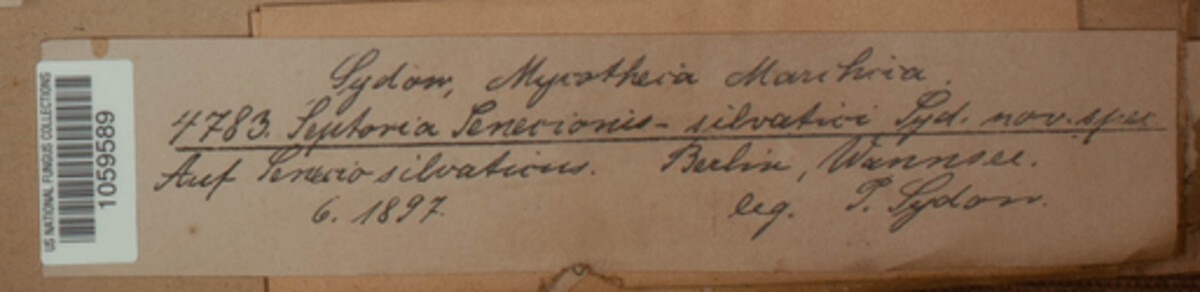 Sydow, Mycotheca Marchica.
4783. Septoria Senecionis-silvatici Syd. nov. spec.
Auf Senecio silvaticus. Berlin, Wannsee.
6. 1897. leg. P. Sydow.
US NATIONAL FUNGUS COLLECTIONS
1059589